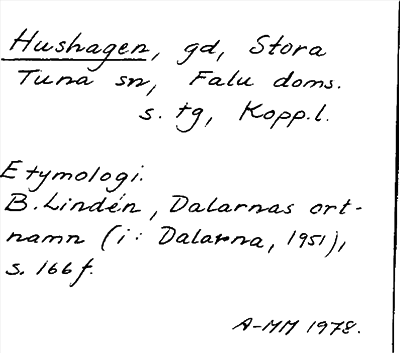 Hushagen, gd, Stora
Tuna sn, Falu doms.
s. tg, Kopp.l.
Etymologi:
B. Lindén, Dalarnas ort-
namn (i: Dalarna, 1951),
s. 166 f.
A-MM 1978.